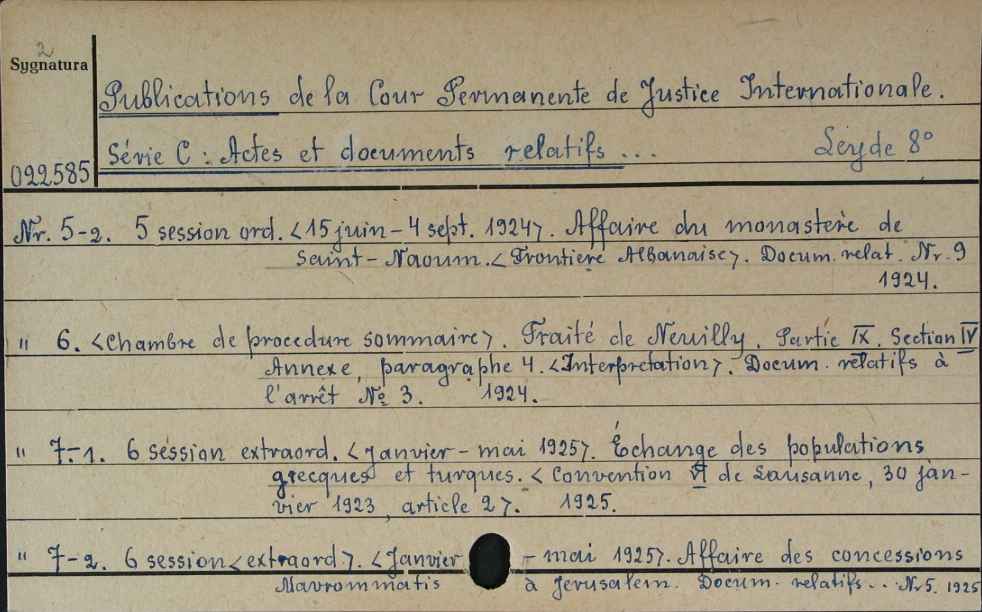 2
Sygnatura
Publications de la Cour Permanente de Justice Internationale.
Série C : Actes et documents relatifs ... Leyde 8°
022585
Nr. 5-2. 5 session ord. <15 juin - 4 sept. 1924>. Affaire du monastère de
Saint-Naoum. <Frontière Albanaise>. Docum. relat. Nr. 9
1924.
" 6. <Chambre de procedure sommaire>. Traité de Neuilly. Partie IX. Section IV
Annexe, paragraphe 4. <Interpretation>. Docum. relatifs à
l'arrêt № 3. 1924.
" 7-1. 6 session extraord. <Janvier - mai 1925>. Échange des populations
grecques et turques. < Convention VI de Lausanne, 30 jan-
vier 1923, article 2>. 1925.
" 7-2. 6 session <extraord>. <Janvier - mai 1925>. Affaire des concessions
Mavrommatis à Jerusalem. Docum. relatifs... Nr 5. 1925